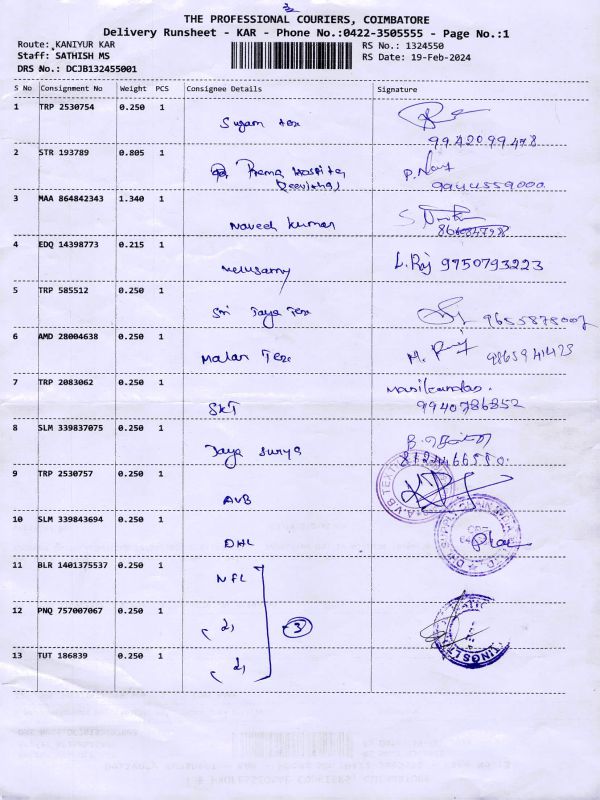 THE PROFESSIONAL COURIERS, COIMBATORE
Delivery Runsheet - KAR - Phone No.:0422-3505555 - Page No.:1
Route: KANIYUR KAR
RS No.: 1324550
Staff: SATHISH MS
RS Date: 19-Feb-2024
DRS No.: DCJB132455001
S No Consignment No Weight PCS Consignee Details Signature
1 TRP 2530754 0.250 1
Sugam tex
9942099478
2 STR 193789 0.805 1
Prema Hospital
9944559000
3 MAA 864842343 1.340 1
Naveen Kumar
4 EDQ 14398773 0.215 1
Velusamy L.Raj 9750793223
5 TRP 585512 0.250 1
Sri Jaya Tex 9655875007
6 AMD 28004638 0.250 1
Malar Tex
M. 9865941423
7 TRP 2083062 0.250 1
Manikandas.
SKT 9940786852
8 SLM 339837075 0.250 1
Jaya Surya 8124466550.
9 TRP 2530757 0.250 1
AVB
10 SLM 339843694 0.250 1
DHL
11 BLR 1401375537 0.250 1
NFL
12 PNQ 757007067 0.250 1
3
13 TUT 186839 0.250 1